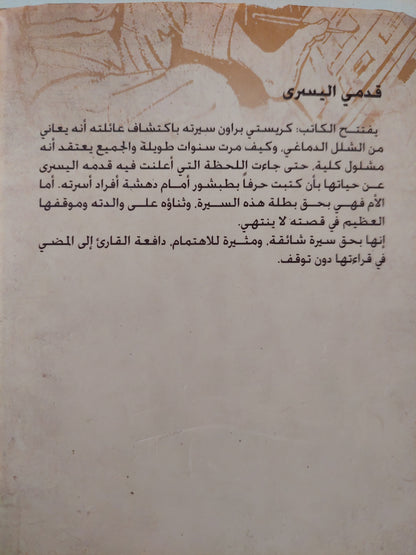 قدمي اليسرى
يفتتح الكاتب: كريستي براون سيرته باكتشاف عائلته أنه يعاني
من الشلل الدماغي، وكيف مرت سنوات طويلة والجميع يعتقد أنه
مشلول كلية، حتى جاءت اللحظة التي أعلنت فيه قدمه اليسرى
عن حياتها بأن كتبت حرفاً بطبشور أمام دهشة أفراد أسرته. أما
الأم فهي بحق بطلة هذه السيرة، وثناؤه على والدته وموقفها
العظيم في قصته لا ينتهي.
إنها بحق سيرة شائقة، ومثيرة للاهتمام، دافعة القارئ إلى المضي
في قراءتها دون توقف.